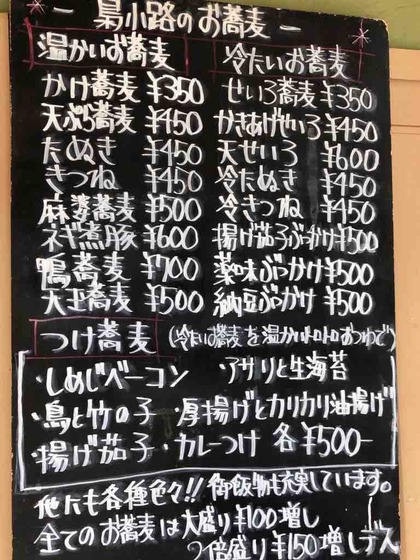 ― 梟小路のお蕎麦 ―
温かいお蕎麦 冷たいお蕎麦
かけ蕎麦 ¥350 せいろ蕎麦 ¥350
天ぷら蕎麦 ¥450 かきあげせいろ ¥450
たぬき ¥450 天せいろ ¥600
きつね ¥450 冷たぬき ¥450
麻婆蕎麦 ¥500 冷きつね ¥450
ネギ煮豚 ¥600 揚げ茄子ぶっかけ ¥500
鴨蕎麦 ¥700 薬味ぶっかけ ¥500
大玉蕎麦 ¥500 納豆ぶっかけ ¥500
つけ蕎麦 (冷たいお蕎麦を温かいトロトロおつゆで)
・しめじベーコン ・アサリと生海苔
・鳥と竹の子 ・厚揚げとカリカリ油揚げ
・揚げ茄子 ・カレーつけ 各¥500-
他にも各種色々!! 御飯物も充実しています。
全てのお蕎麦は大盛り¥100増し
2倍盛り¥150増しデス